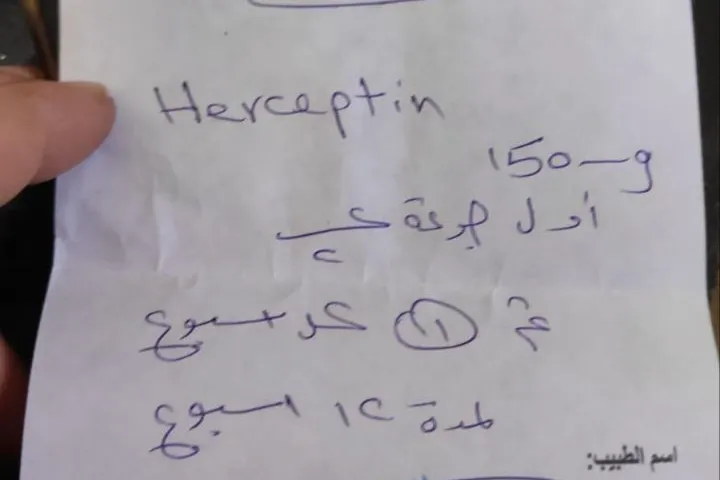 Herceptin
150 mg
أول جرعة ٢
ثم ١ كل اسبوع
لمدة ١٢ اسبوع
اسم الطبيب: